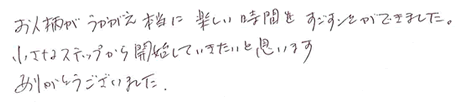 お人柄がうかがえ本当に楽しい時間をすごすことができました。
小さなステップから開始していきたいと思います
ありがとうございました.